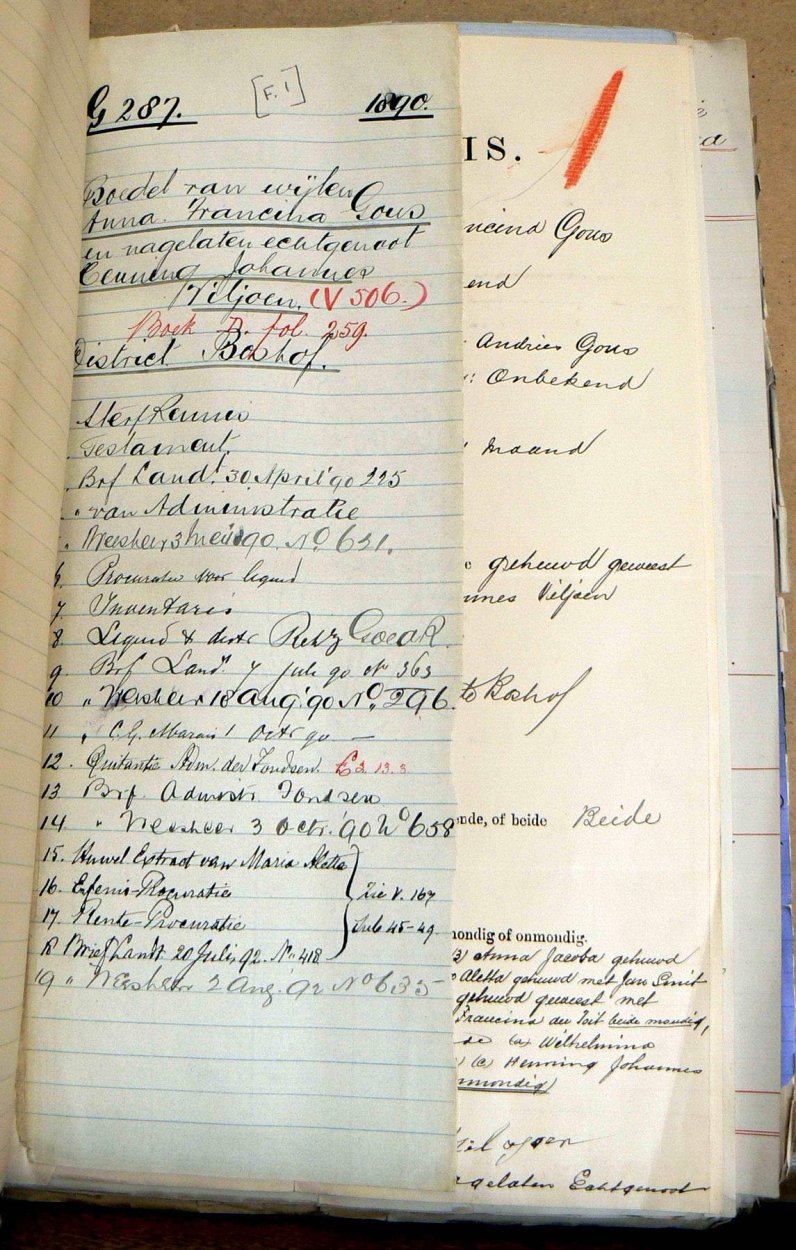 G 287. [F.1] 1890.
Boedel van wijlen
Anna Francina Gous
en nagelaten echtgenoot
Henning Johannes
Viljoen. (V 506.)
Boek D. fol. 259.
District Boshof.
Sterfkennis
Testament
Brf Landt. 30 April '90 225
" van Administratie
" Weesheer 3 Mei 90. No 631.
6. Procuratie voor liquid
7. Inventaris
8 Liquid & distr
9 Brf Landt. 7 Juli 90 No 363
10 " Weesheer 18 Aug. '90 No. 296.
11 " C.G. Marais 1 Octr 90 —
12. Quitantie Adm. der Fondsen.
13 Brf. Admistr Fondsen
14 " Weesheer 3 Octr. '90 No 658
15. Huwel Extract van Maria Aletta
16. Erfenis-Procuratie Zie V. 167
17. Rente-Procuratie Sub 45-49.
18 Brief Landt. 20 Julij 92. No. 418.
19 " Weesheer 2 Aug. '92 No 635
IS.
ncina Gous
end
Andries Gous
: Onbekend
maand
gehuwd geweest
nnes Viljoen
te Boshof
ende, of beide Beide
mondig of onmondig.
Anna Jacoba gehuwd
Aletta gehuwd met Jan Smit
gehuwd geweest met
Francina du Toit beide mondig,
de (a) Wilhelmina
(c) Henning Johannes
nmondig)
gelaten Echtgenoot